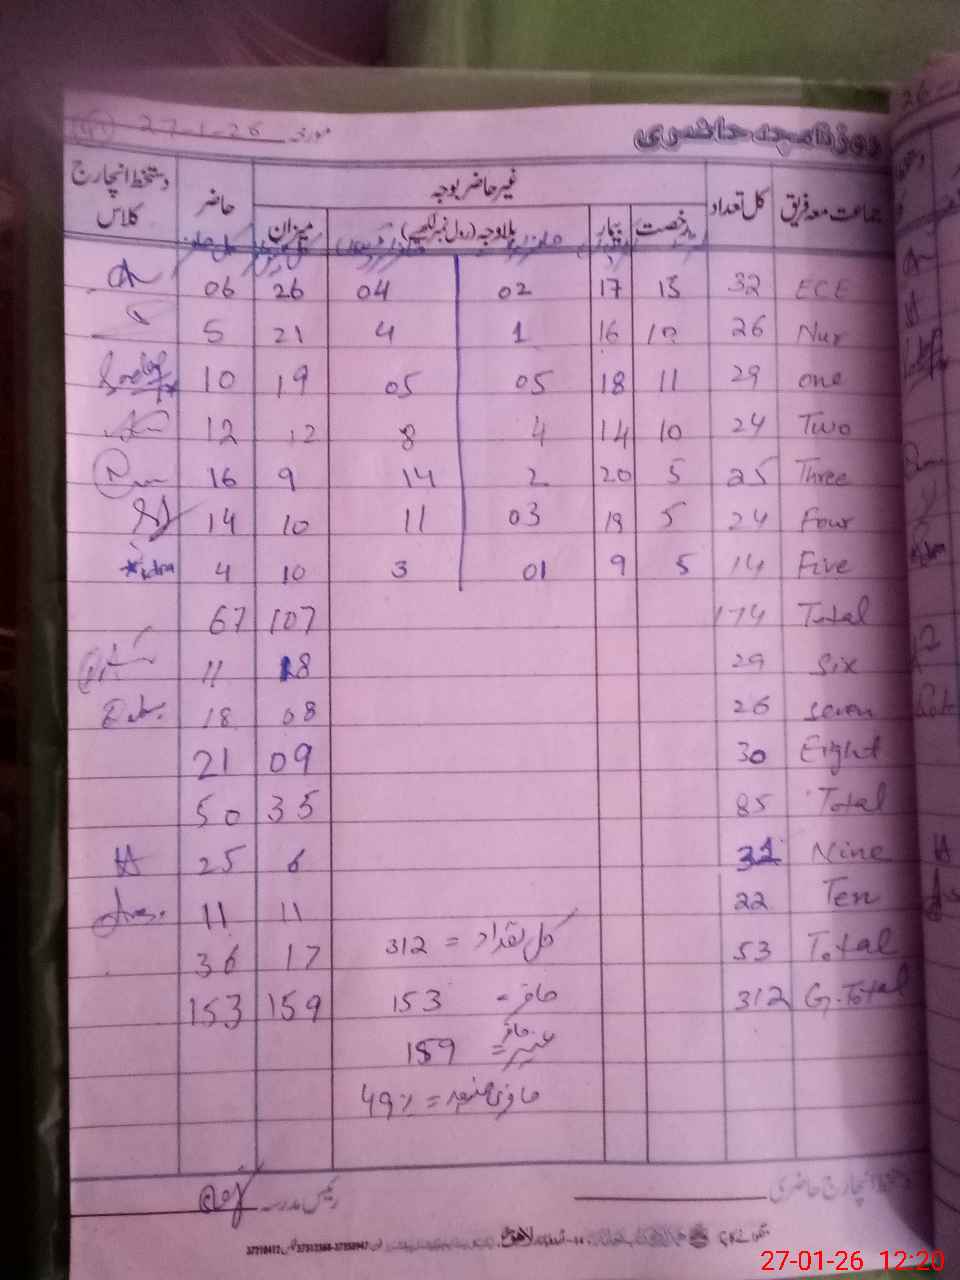 روزنامچہ حاضری مورخہ 27-1-26
جماعت معہ فریق کل تعداد غیر حاضر بوجہ حاضر دستخط انچارج کلاس
رخصت بیمار بلاوجہ (رول نمبر لکھیں) میزان
ECE 32 13 17 02 04 26 06
Nur 26 10 16 1 4 21 5
one 29 11 18 05 05 19 10
Two 24 10 14 4 8 12 12
Three 25 5 20 2 14 9 16
Four 24 5 19 03 11 10 14
Five 14 5 9 01 3 10 4
Total 174 107 67
Six 29 18 11
Seven 26 08 18
Eight 30 09 21
Total 85 35 50
Nine 31 6 25
Ten 22 11 11
Total 53 17 36
کل تعداد = 312
G.Total 312 159 153
حاضر = 153
غیر حاضر = 159
حاضری فیصد = 49%
دستخط انچارج حاضری رئیس مدرسہ
27-01-26 12:20